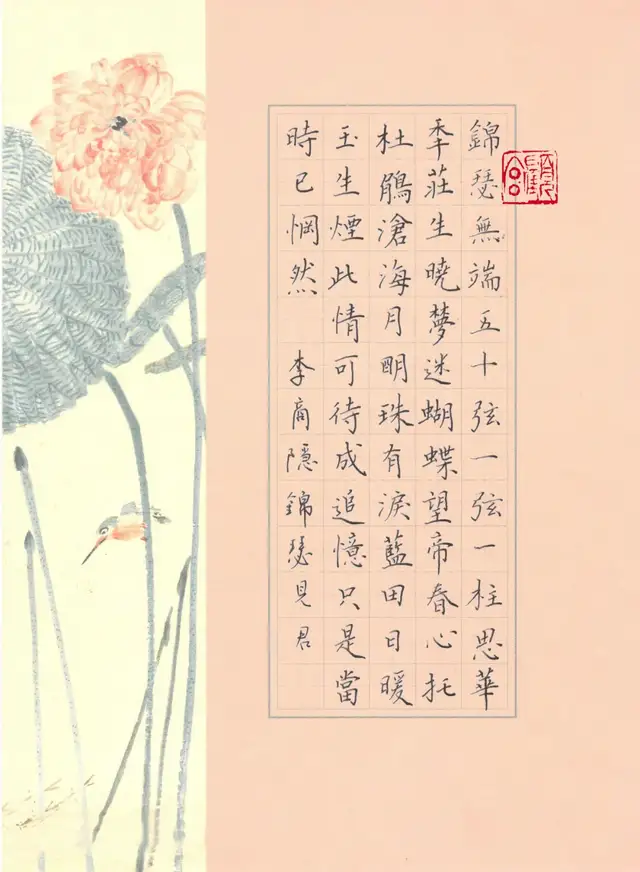 錦瑟無端五十弦一弦一柱思華
秊莊生曉夢迷蝴蝶望帝春心托
杜鵑滄海月明珠有淚藍田日暖
玉生煙此情可待成追憶只是當
時已惘然 李商隱錦瑟見君